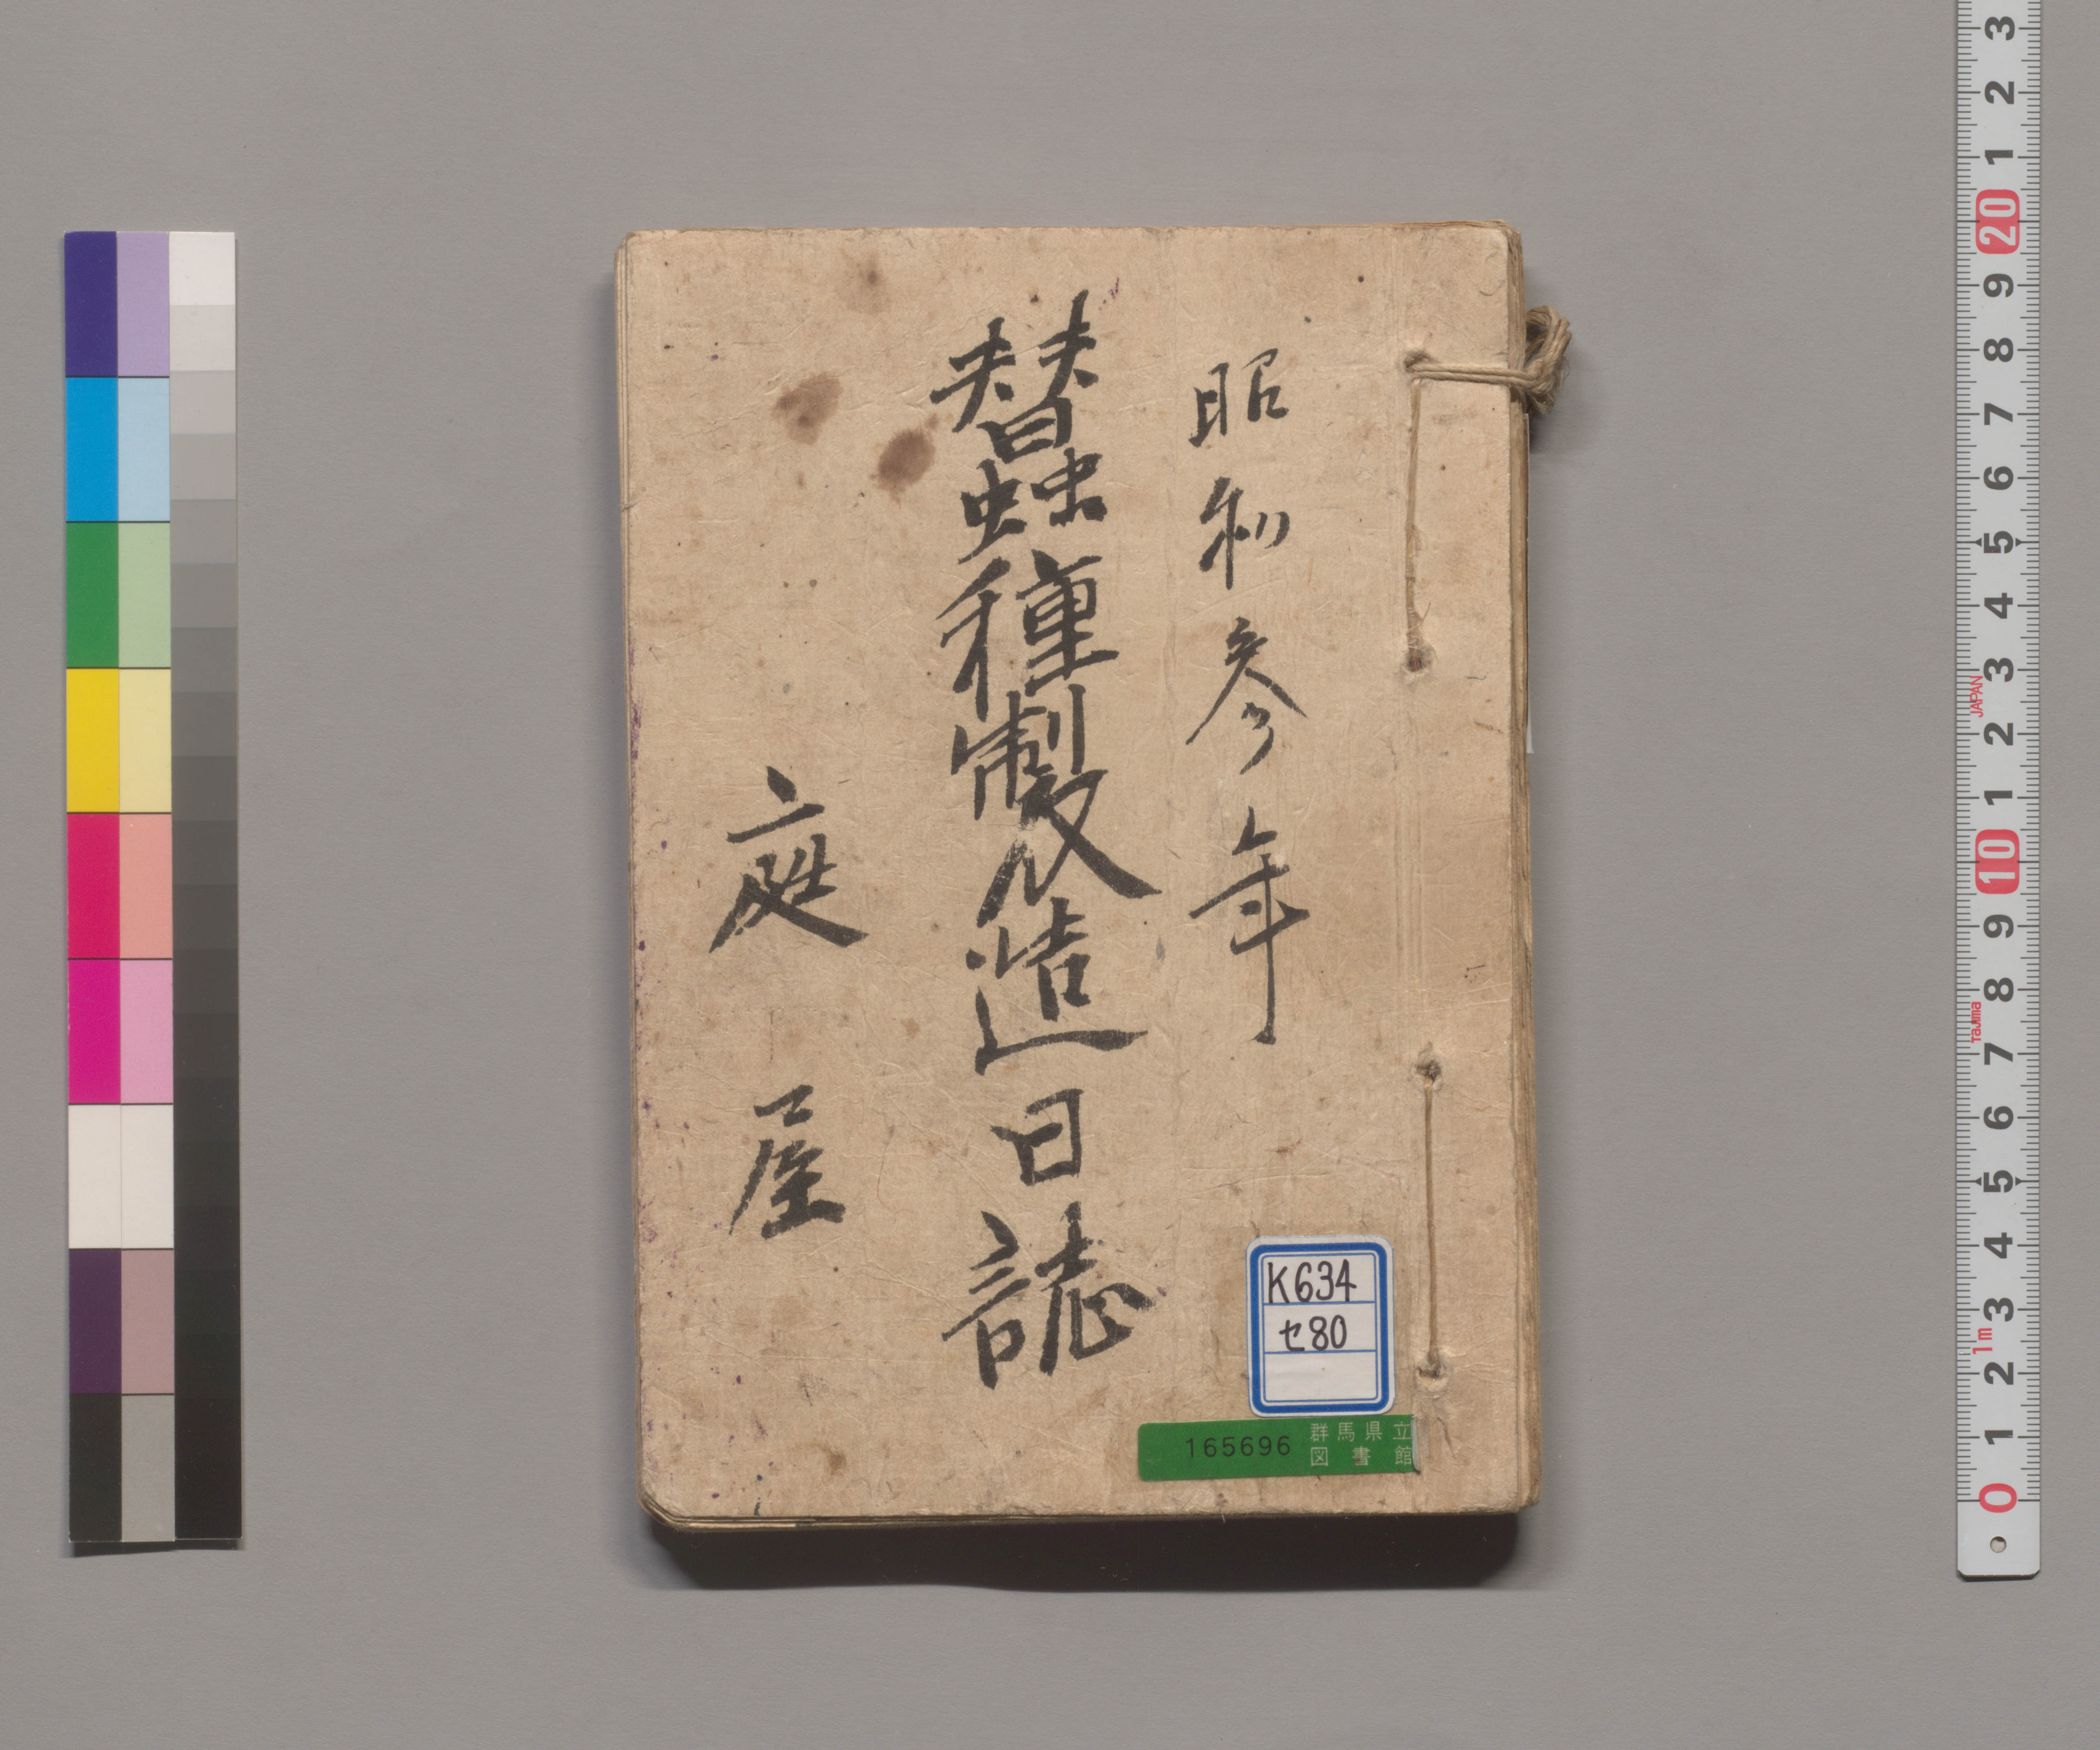 昭和参年
蠶種製造日誌
庭屋
K634
セ80
165696 群馬県立
図書館
3
2
1
20
9
8
7
6
5
4
3
JAPAN
2
1
10
9
8
Tajima
7
6
5
4
3
1m
2
1
0